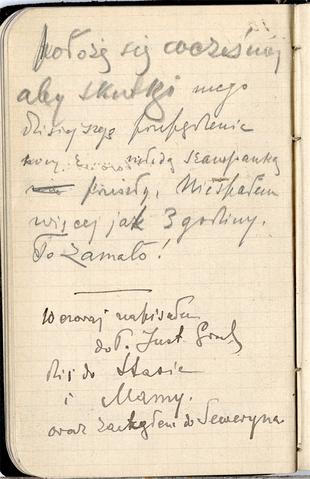 położę się wcześniej
aby skutki mego
dzisiejszego
młodą szampanką
przeszły. Nie spałem
więcej jak 3 godziny.
To zamało!
Wczoraj napisałem
do P. Just
Dziś do Stasia
i Mamy.
oraz zacząłem do Seweryna